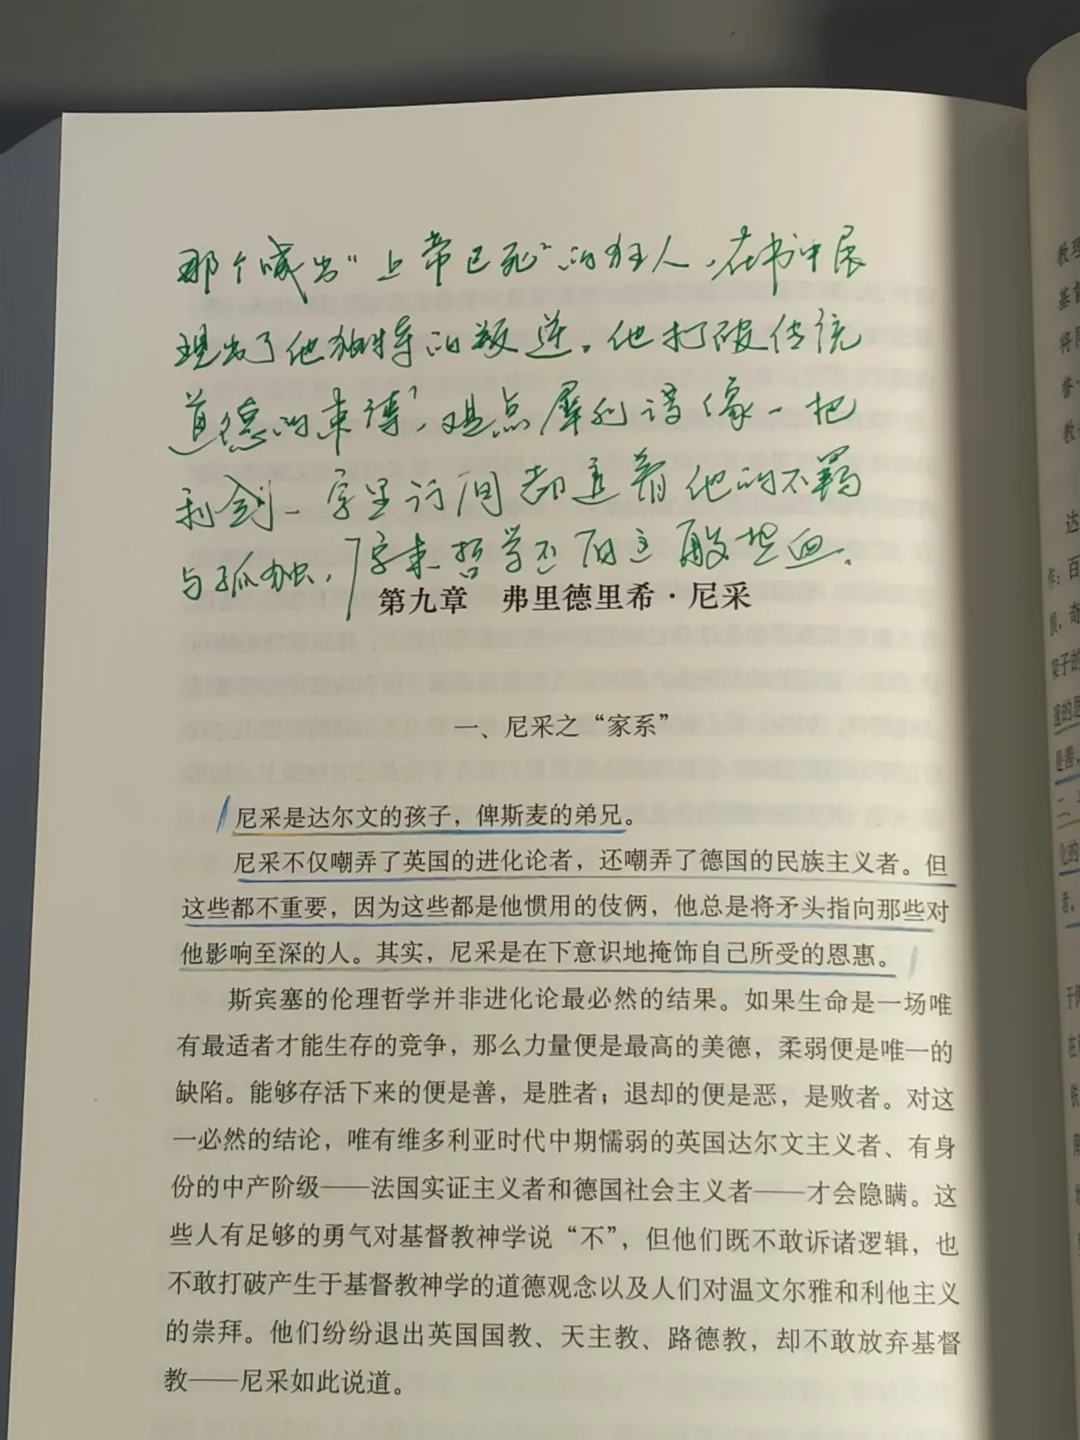 那个喊出“上帝已死”的狂人，在书中展
现出了他独特的叛逆。他打破传统
道德的束缚，观点犀利得像一把
利剑，字里行间都透着他的不羁
与孤独，原来哲学还可以这般热血。
第九章 弗里德里希·尼采
一、尼采之“家系”
尼采是达尔文的孩子，俾斯麦的弟兄。
尼采不仅嘲弄了英国的进化论者，还嘲弄了德国的民族主义者。但
这些都不重要，因为这些都是他惯用的伎俩，他总是将矛头指向那些对
他影响至深的人。其实，尼采是在下意识地掩饰自己所受的恩惠。
斯宾塞的伦理哲学并非进化论最必然的结果。如果生命是一场唯
有最适者才能生存的竞争，那么力量便是最高的美德，柔弱便是唯一的
缺陷。能够存活下来的便是善，是胜者；退却的便是恶，是败者。对这
一必然的结论，唯有维多利亚时代中期懦弱的英国达尔文主义者、有身
份的中产阶级——法国实证主义者和德国社会主义者——才会隐瞒。这
些人有足够的勇气对基督教神学说“不”，但他们既不敢诉诸逻辑，也
不敢打破产生于基督教神学的道德观念以及人们对温文尔雅和利他主义
的崇拜。他们纷纷退出英国国教、天主教、路德教，却不敢放弃基督
教——尼采如此说道。